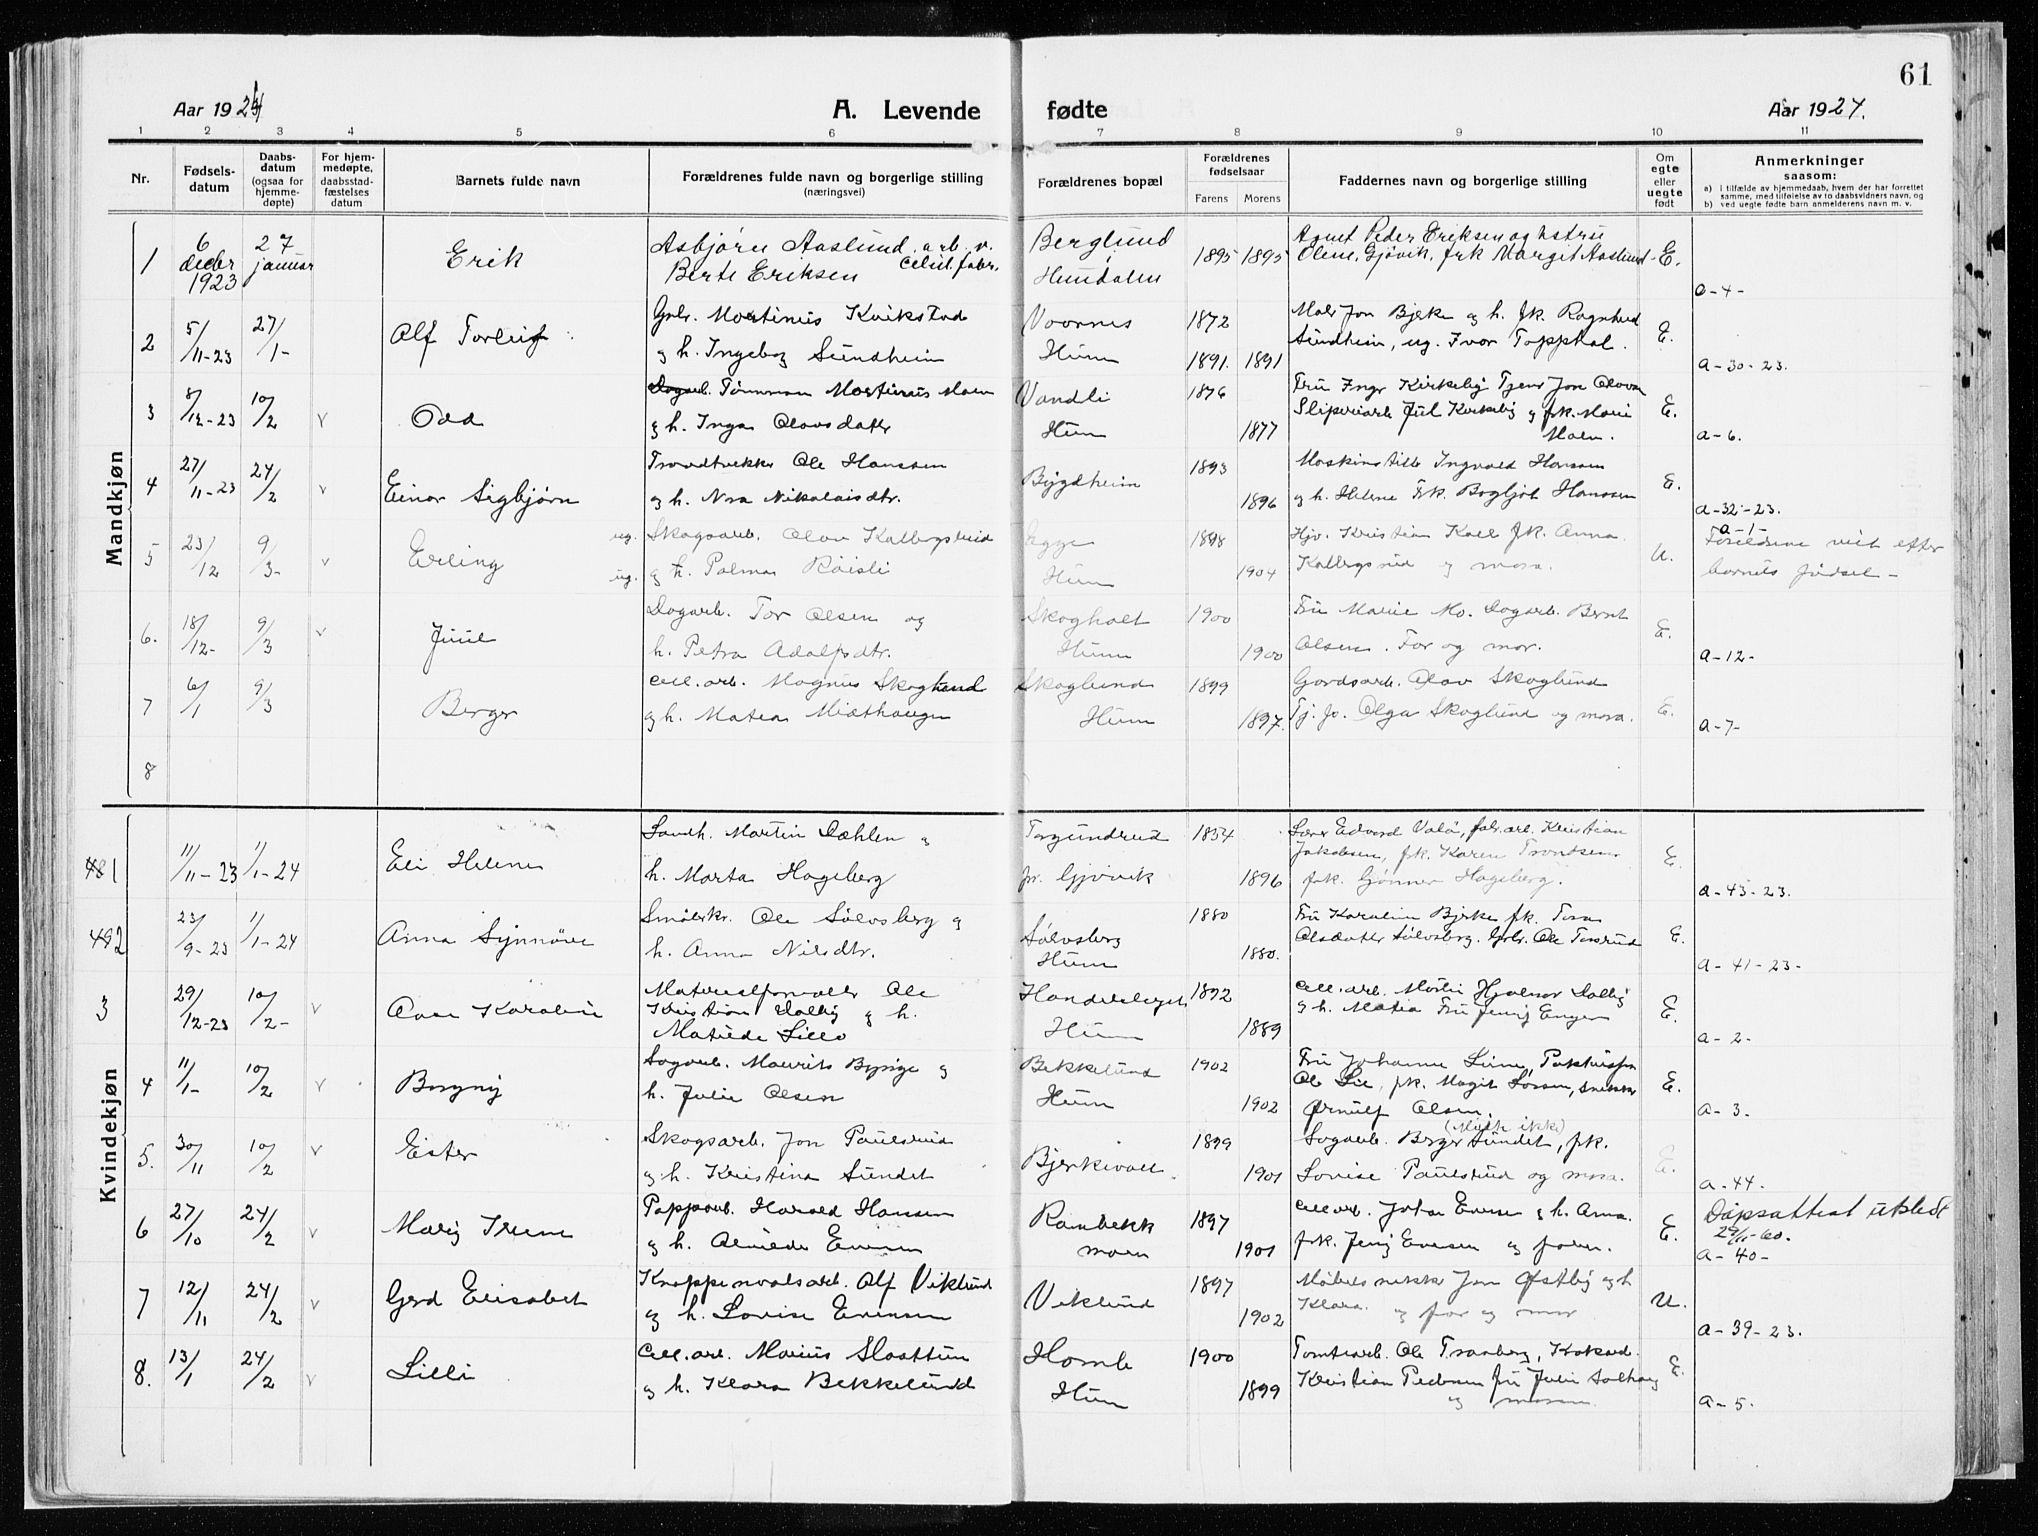 61
Aar 1924
A. Levende fødte
Aar 1924.
1 2 3 4 5 6 7 8 9 10 11
Nr.
Fødsels-
datum
Daabs-
datum
(ogsaa for
hjemme-
døpte)
For hjem-
medøpte,
daabsstad-
fæstelses
datum
Barnets fulde navn
Forældrenes fulde navn og borgerlige stilling
(næringsvei)
Forældrenes bopæl
Forældrenes
fødselsaar
Farens Morens
Faddernes navn og borgerlige stilling
Om
egte
eller
uegte
født
Anmerkninger
saasom:
a) i tilfælde av hjemmedaab, hvem der har forrettet
samme, med tilføielse av to daabsvidners navn, og
b) ved uegte fødte barn anmelderens navn m. v.
Mandkjøn
1
6 decbr 1923
27 januar
Erik
Asbjørn Aaslund arb. v.
Berte Eriksen Celul. fabr.
Berglund
Hundalen
1895 1895
Agent Peder Eriksen og hstru
Oline, Gjøvik, frk Margit Aaslund
E.
a-4-
2
5/11-23
27/1-
Alf Torleif
Gbr. Martinus Kvikstad
og h. Ingeborg Sundheim
Voornes
Hunn
1872
1891. 1891
Maler Jon Bjerke og h. frk. Ragnhild
Sundheim, ug. Ivar Topphol.
E.
a-30-23.
3
8/12-23
10/2
v
Odd
Tømmerm Martinus Moen
og h. Inga Olavsdatter
Vandli
Hunn
1876
1877
Fru Inga Kirkeby Tjener Jon Olavsen
Sliperiarb Jul Kirkeby og frk. Marie
Moen.
E.
a-6.
4
27/11-23
24/2
v
Einar Sigbjørn
Traadtrekker Ole Hanssen
og h. Nra Nikolaisdtr.
Bygdheim
1893
1896
Maskinstille Ingvald Hanssen
og h. Helene Frk. Bogljot Hanssen
E.
a-32-23.
5
23/12
9/3-
v
Erling
ug. Skogsarb. Olav Kalbergsruid
ug. og h. Palma Röisli
Hunn
1898
1904
Hjv. Kristian Koll frk. Anna
Kalbergsrud og mora.
U.
a-1-
Foreldrene viet efter
barnets fødsel-
6.
18/12-
9/3
v
Juul
Dagarb. Tor Olsen og
h. Petra Adolfsdtr.
Skogholt
Hunn
1900
1900
Fru Marie Mo. Dagarb. Bernt
Olsen. Far og mor.
E.
a-12-
7
6/1
9/3
Berger
Cell.arb. Magnus Skoglund
og h. Matea Miæthaugen
Skoglund
Hunn
1899
1897.
Gardsarb. Olav Skoglund
Tj. jo. Olga Skoglund og mora.
E.
a-7-
8
Kvindekjøn
481
11/11-23
1/1-24
Eli Helene
Landh. Martin Dæhlen og
h. Marta Hageberg
Torgundrud
pr. Gjøvik
1854
1896
Lærer Edvard Valø, fabr.arb. Kristian
Jakobsen, frk. Karen Trondsen
frk. Gunnor Hageberg.
E.
a-43-23.
492
23/9-23
1/1-24
Anna Synnøve
Smølerkr. Ole Sölvsberg og
h. Anna Nilsdtr.
Sölvsberg
Hunn
1880
1880.
Fru Karoline Bjerke frk. Tora
Olsdatter Sölvsberg. Gbr. Ole Torsrud
E.
a-41-23-
3
29/12-23
10/2-
v
Aase Karoline
Materialforvalter Ole
Kristian Dalby og h.
Matilde Lillo
Hunn
1892
1889
Cell.arb. Martin Hjalmar Dalby
og h. Matea Fru Jenny Enger
E.
a-2-
4
11/1-
10/2
v
Borgny
Sagarb. Maurits Bysige og
h. Julie Olsen
Bekkelund
Hunn
1902
1902
Fru Johanne Linne, Pakhusfor
Ole Lie, frk. Magit Larsen, snekker
Arnulf Olsen.
E.
a-3.
5.
30/11
10/2
v
Ester
Skogsarb. Jon Paulsrud
og h. Kristina Sundet
Bjerkevoll
1899
1901
(møtte ikke)
Sagarb. Berger Sundet, frk.
Lovise Paulsrud og mora.
E.
a-44.
6
27/10
24/2
v
Mary Irene
Papparb. Harald Hansen
og h. Almida Evensen
Rambekk
moen
1897
1901
Cell arb. Johan Evensen og h. Anna.
frk. Jenny Evensen og faren.
E.
Dåpsattest utstedt
29/11-60.
a-40-
7
12/11
24/2
v
Gerd Elisabet
Knappenvalsarb. Alf Viklund
og h. Lovise Evensen
Viklund
1897
1902
Møbelsnekker Jon Østby og h
Klara og far og mor
U.
a-39-23.
8.
13/1
24/2
v
Lilli
Cell.arb. Marius Slaattun
og h. Klara Bekkelund
Homle
Hunn
1900
1899
Tomtearb. Ole Tranberg, Kokard.
Kristian Pedersen fru Julie Solhaug
og moren
E.
a-5.